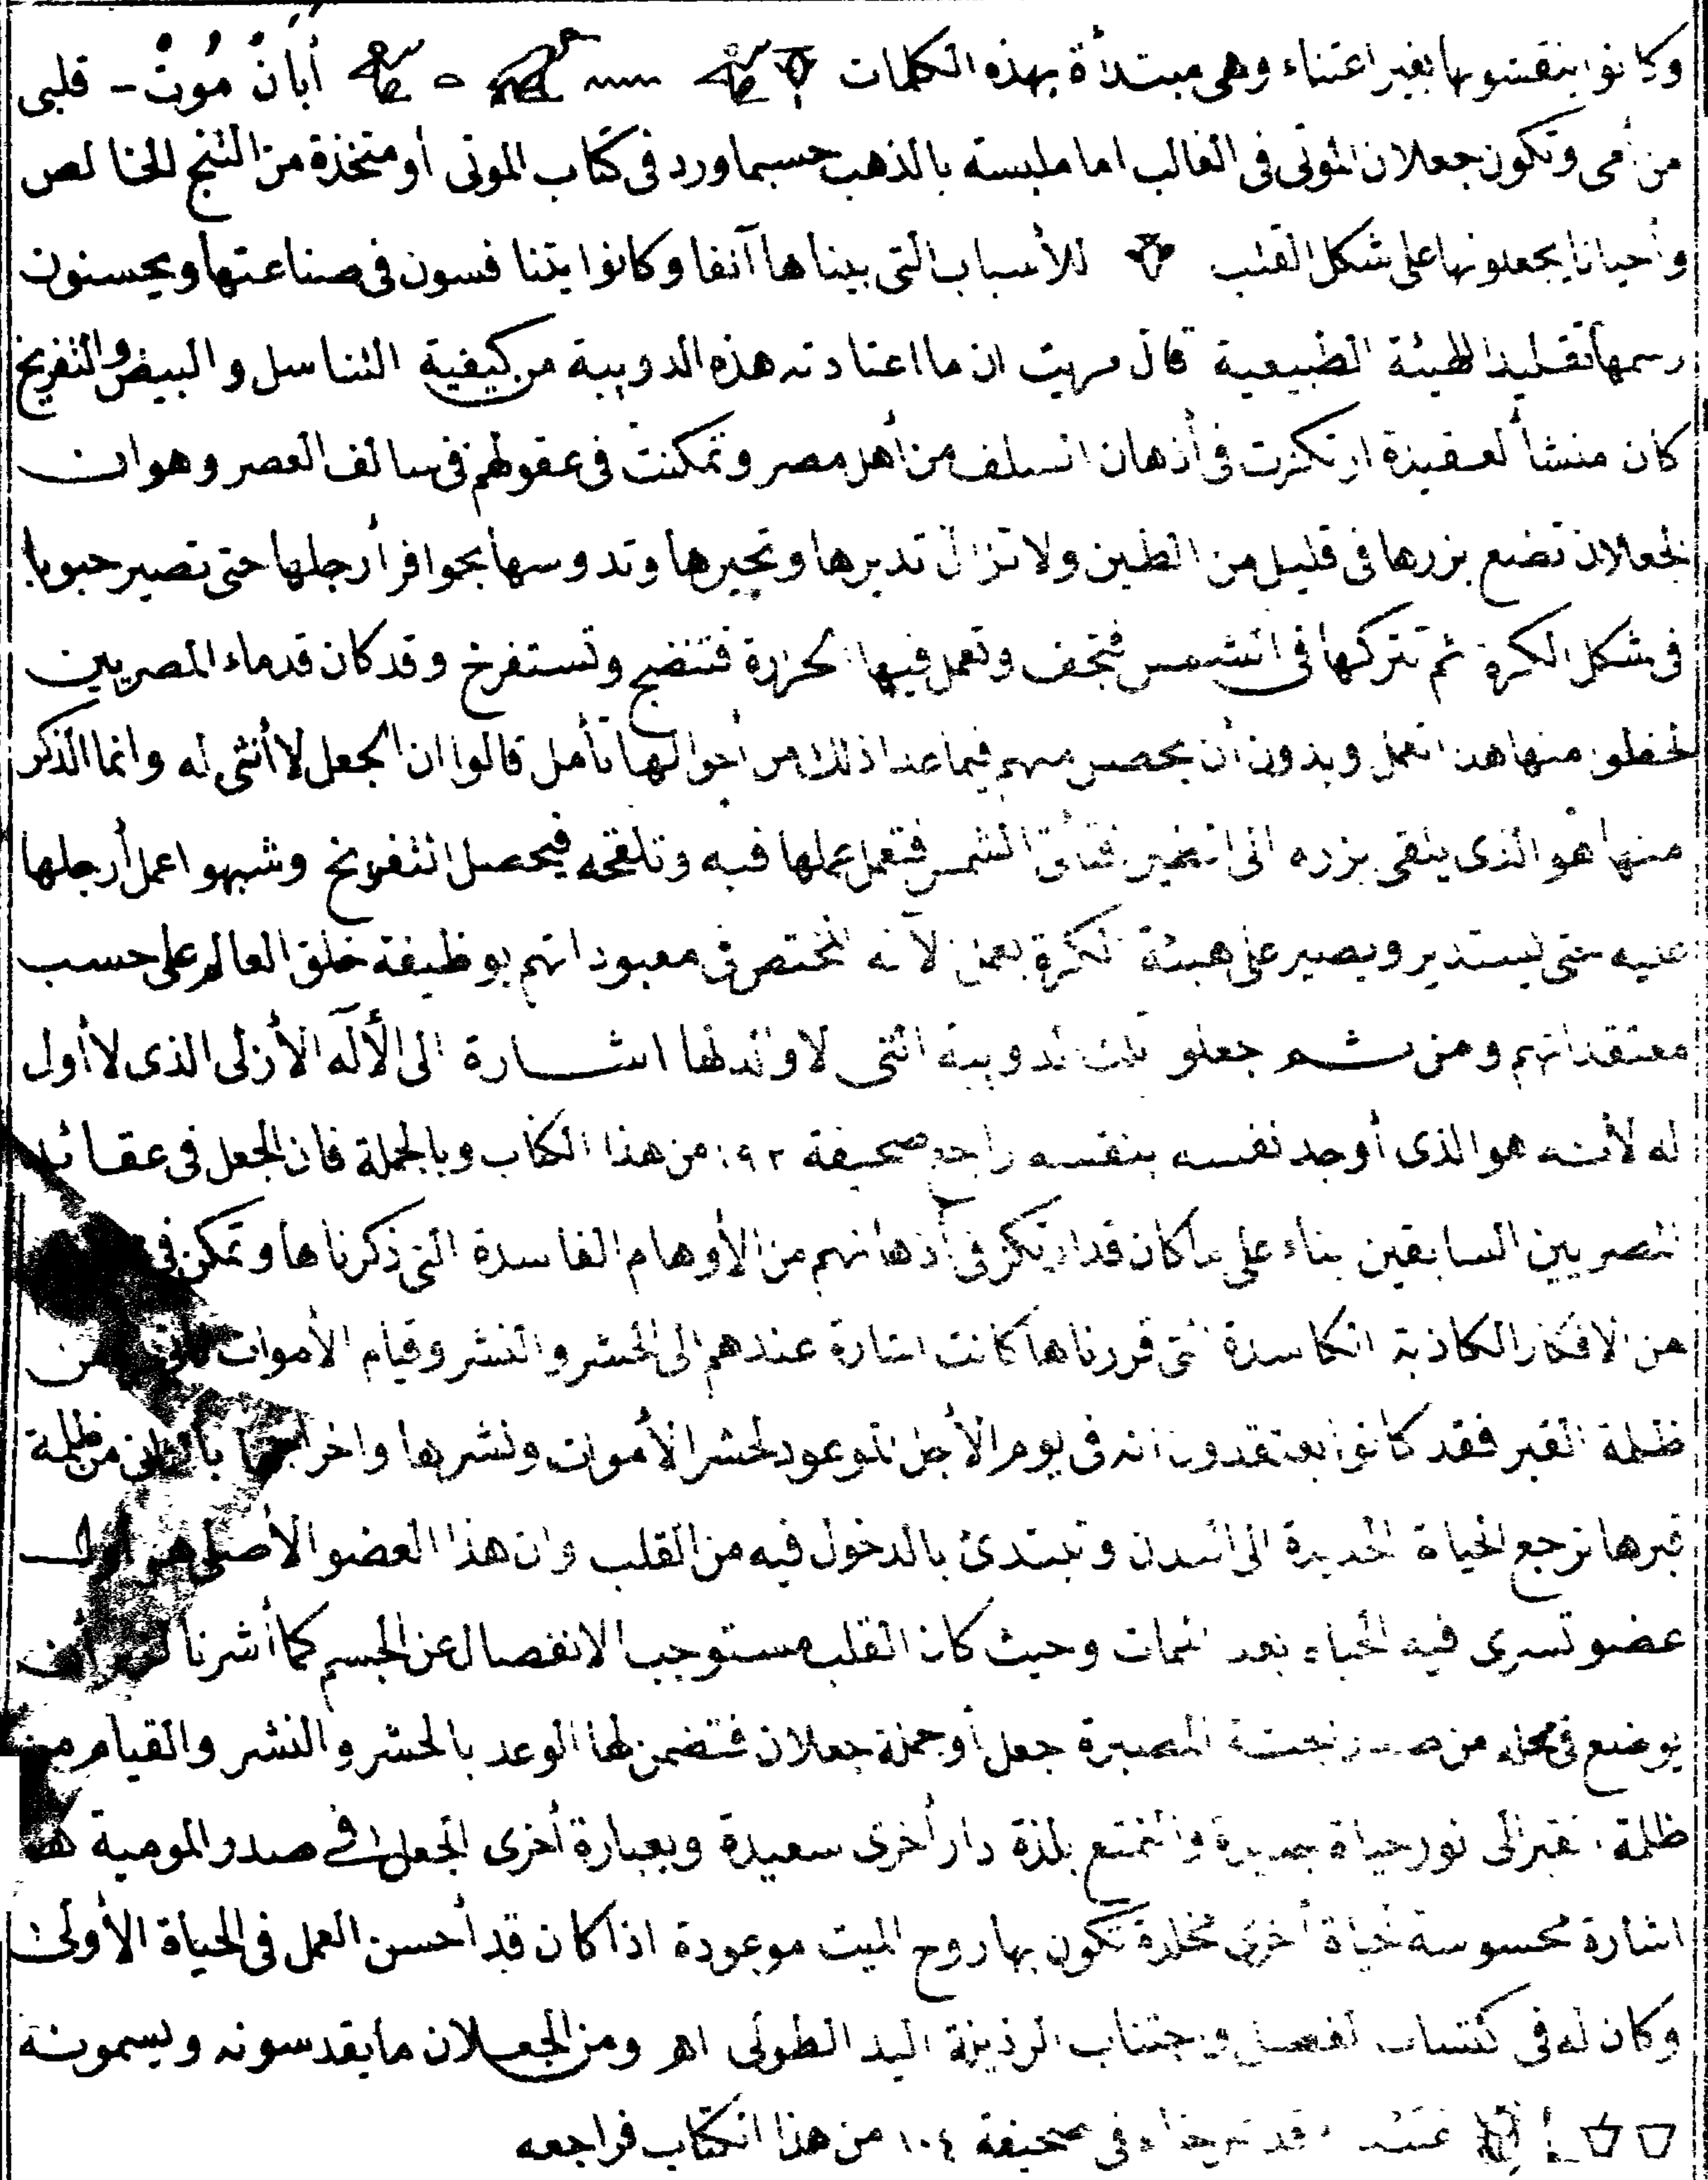 وكانوا ينقشونها بغير اعتناء وهى مبتدأة بهذه الكلمات أبان موت - قلبى
من أمى وتكون جعلان الموتى فى الغالب اما ملبسة بالذهب حسبما ورد فى كتاب الموتى أو متخذة من الثبج الخالص
وأحيانا يجعلونها على شكل القلب للأسباب التى بيناها آنفا وكانوا يتنافسون فى صناعتها ويحسنون
رسمها تقليدا للهيئة الطبيعية قال مريت ان ما اعتادته هذه الدويبة من كيفية التناسل والبيض والتفريخ
كان منشأ لعقيدة ارتكزت فى أذهان السلف من أهل مصر وتمكنت فى عقولهم فى سالف العصر وهو ان
الجعلان تضع بزرها فى قليل من الطين ولا تزال تديرها وتحيرها وتدوسها بحوافر أرجلها حتى تصير حبوبا
فى شكل الكرة ثم تتركها فى الشمس فتجف وتعمل فيها الحرارة فتنضج وتستفرخ وقد كان قدماء المصريين
لحظوا منها هذا العمل وبدون أن يحصل منهم فيما عدا ذلك من أحوالها تأمل قالوا ان الجعل لا أنثى له وانما الذكر
منها هو الذى يلقى بزره الى فتأتى الشمس فتعمل عملها فيه وتلقحه فيحصل التفريخ وشبهوا عمل أرجلها
عليه حتى يستدير ويصير على هيئة الكرة بعمل لأنه المختص فى معبوداتهم بوظيفة خلق العالم على حسب
معتقداتهم ومن ثم جعلوا تلك الدويبة التى لا والد لها اشارة الى الأله الأزلى الذى لا أول
له لأنه هو الذى أوجد نفسه بنفسه راجع صحيفة ١٩٢ من هذا الكتاب وبالجملة فان الجعل فى عقائد
المصريين السابقين بناء على ما كان قد ارتكز فى أذهانهم من الأوهام الفاسدة التى ذكرناها وتمكن فى
من الافكار الكاذبة الكاسدة التى قررناها كانت اشارة عندهم الى الحشر والنشر وقيام الأموات من
ظلمة القبر فقد كانوا يعتقدون انه فى يوم الأجل الموعود لحشر الأموات ونشرها واخراجها من ظلمة
قبرها ترجع الحياة الجديدة الى البدن وتبتدئ بالدخول فيه من القلب وان هذا العضو الأصلى هو أول
عضو تسرى فيه الحياة بعد الممات وحيث كان القلب مستوجب الانفصال عن الجسم كما أشرنا
يوضع فى محله من صدر الجثة المصبرة جعل أو جملة جعلان فتضمن لها الوعد بالحشر والنشر والقيام من
ظلمة القبر الى نور حياة جديدة والتمتع بلذة دار أخرى سعيدة وبعبارة أخرى الجعل فى صدر المومية هو
اشارة محسوسة لحياة أخرى مخلدة تكون بها روح الميت موعودة اذا كان قد أحسن العمل فى الحياة الأولى
وكان له فى كتساب الفضل واجتناب الرذيلة اليد الطولى اهـ ومن الجعلان ما يقدسونه ويسمونه
وقد شرحناه فى صحيفة ١٠٤ من هذا الكتاب فراجعه